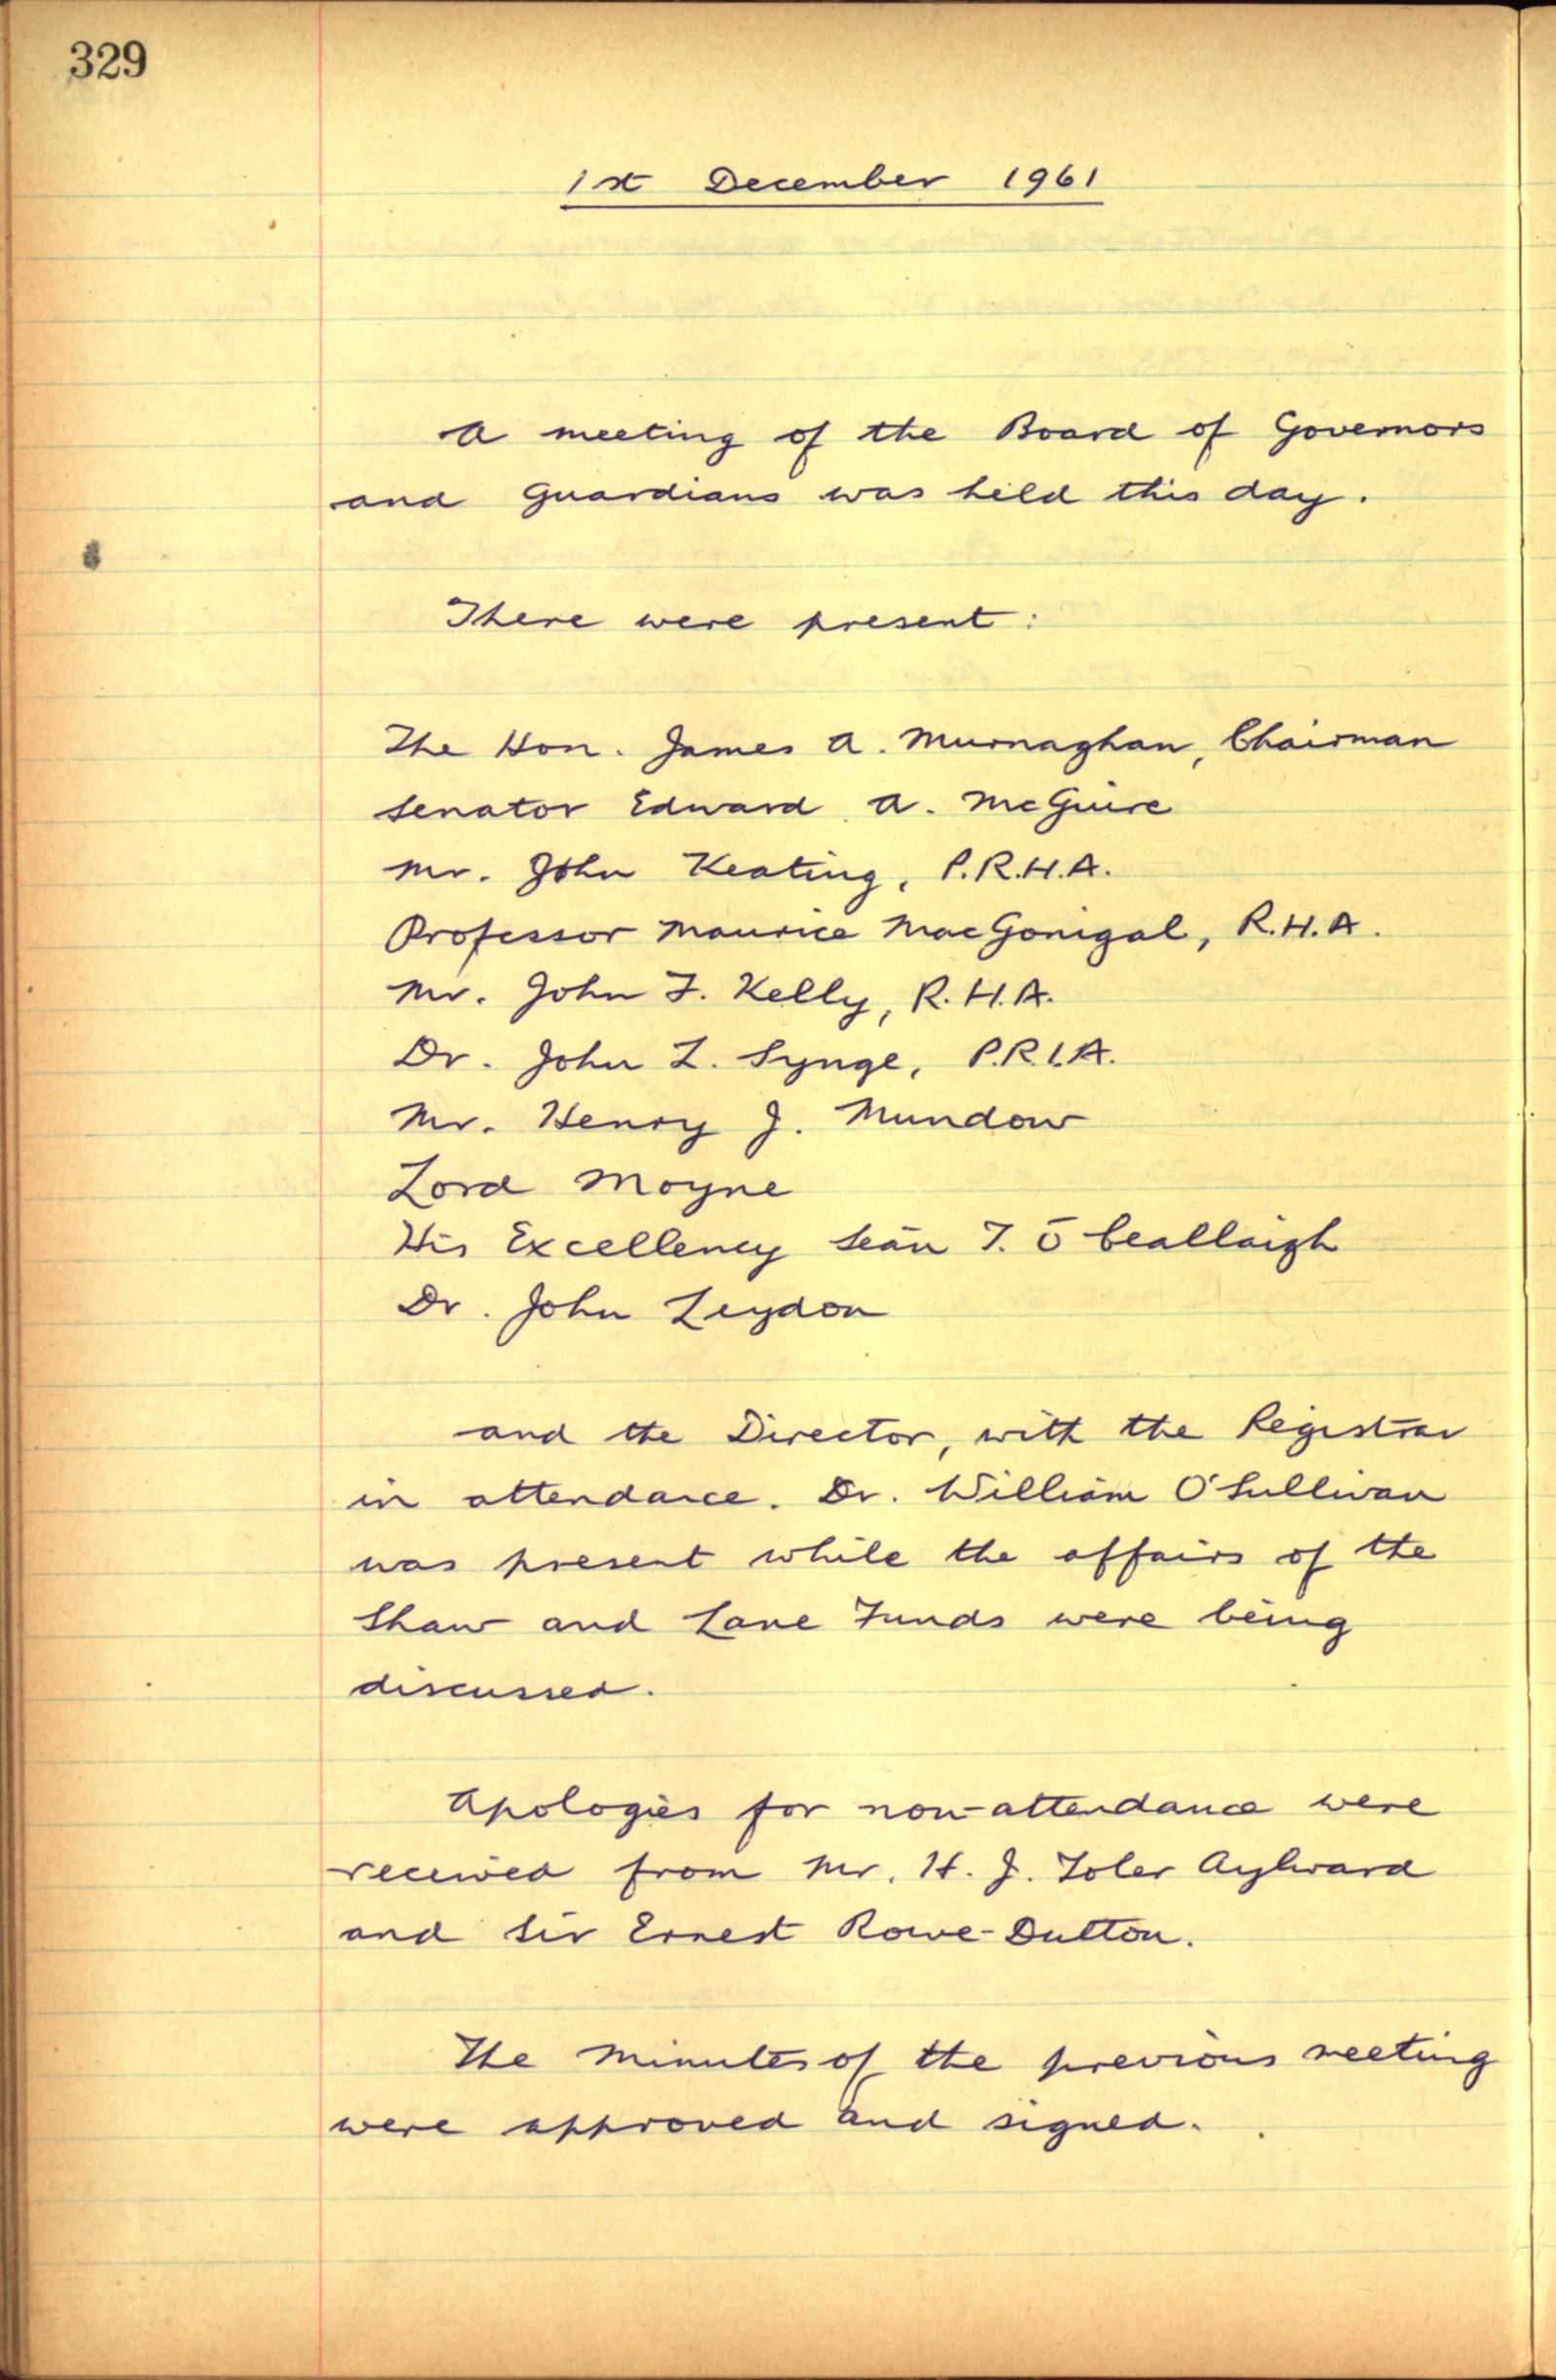 329
1st December 1961
A meeting of the Board of Governors
and Guardians was held this day.
There were present:
The Hon. James A. Murnaghan, Chairman
Senator Edward A. McGuire
Mr. John Keating, P.R.H.A.
Professor Maurice MacGonigal, R.H.A.
Mr. John F. Kelly, R.H.A.
Dr. John L. Synge, P.R.I.A.
Mr. Henry J. Mundow
Lord Moyne
His Excellency Seán T. Ó Ceallaigh
Dr. John Leydon
and the Director, with the Registrar
in attendance. Dr. William O'Sullivan
was present while the affairs of the
Shaw and Lane Funds were being
discussed.
Apologies for non-attendance were
received from Mr. H. J. Toler Aylward
and Sir Ernest Rowe-Dutton.
The minutes of the previous meeting
were approved and signed.